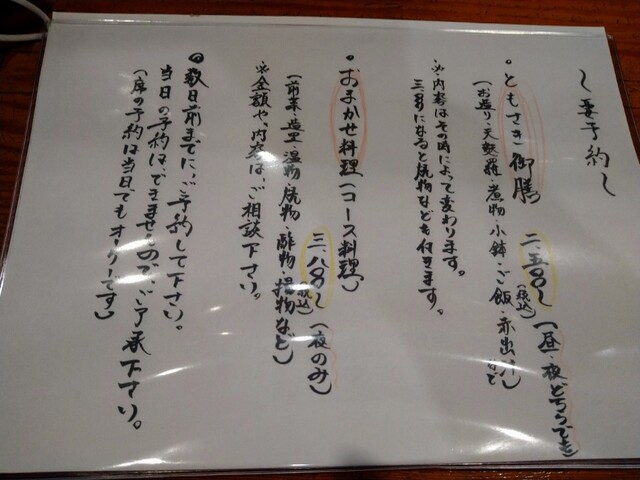 〜要予約〜
・ともさき御膳 二、五〇〇〜(税込)(昼・夜どちらでも)
(お造り・天麩羅・煮物・小鉢・ご飯・赤出汁など)
※内容はその時によって変わります。
三、八〇〇になると焼物なども付きます。
・おまかせ料理(コース料理) 三、八〇〇〜(税込)(夜のみ)
(前菜・造里・温物・焼物・酢物・揚物など)
※金額や、内容は、ご相談下さい。
数日前までに、ご予約して下さい。
当日の予約は、できませんので、ご了承下さい。
(席の予約は当日でもオーケーです)